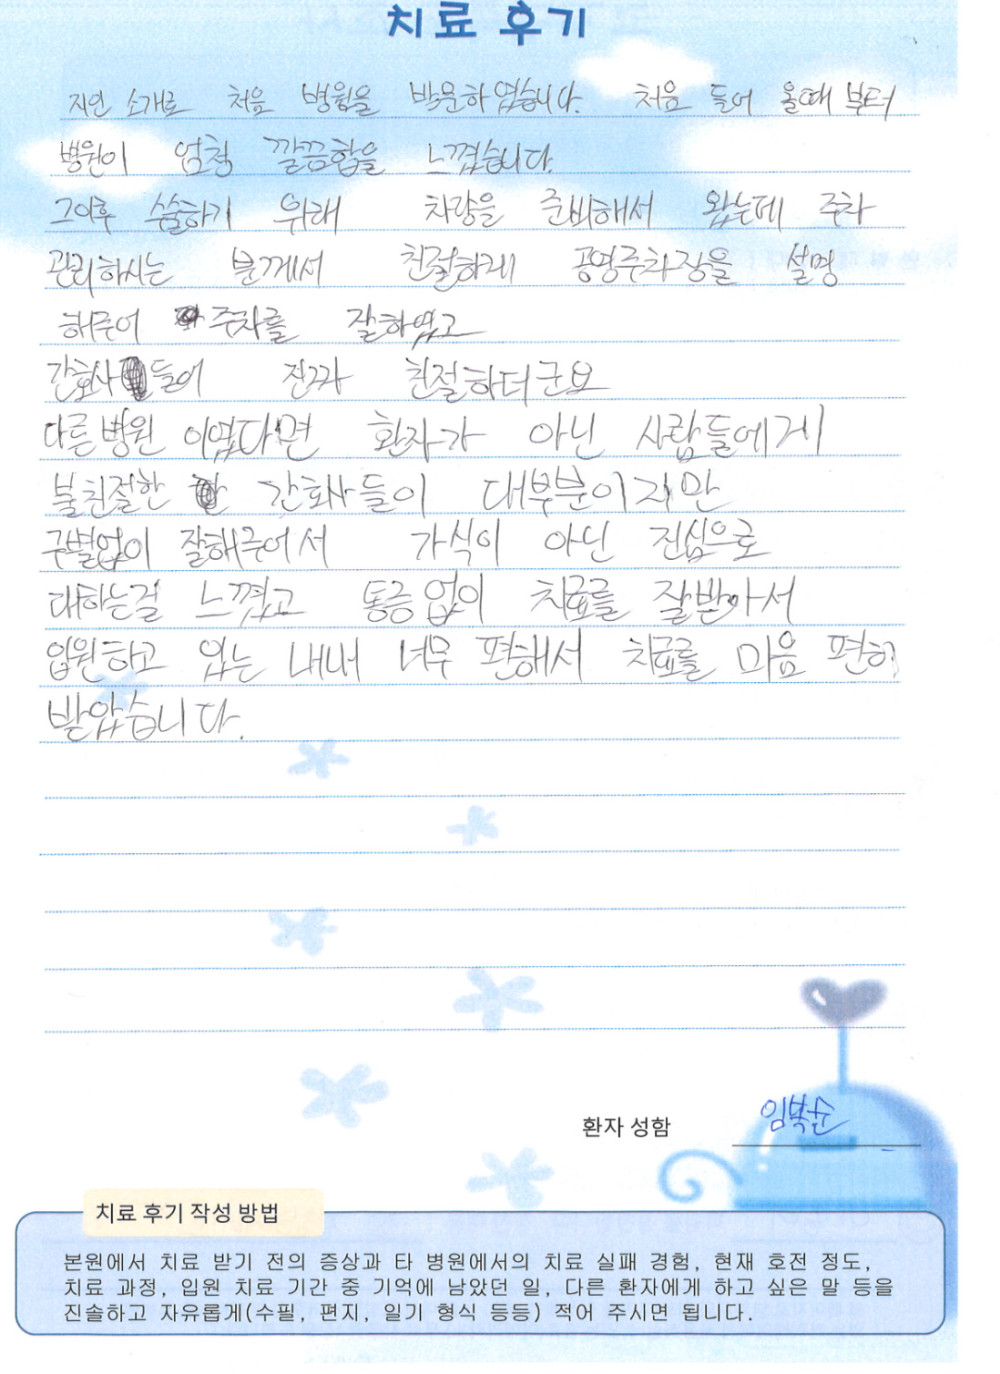 치료 후기
지인 소개로 처음 병원을 방문하였습니다. 처음 들어 올때 부터
병원이 엄청 깔끔함을 느꼈습니다.
그이후 수술하기 위해 차량을 준비해서 왔는데 주차
관리하시는 분께서 친절하게 공영주차장을 설명
해주어 주차를 잘하였고
간호사 들이 진짜 친절하더군요
다른 병원 이였다면 환자가 아닌 사람들에게
불친절한 간호사들이 대부분이지만
구별없이 잘해주어서 가식이 아닌 진심으로
대하는걸 느꼈고 통증 없이 치료를 잘받아서
입원하고 있는 내내 너무 편해서 치료를 마음 편히
받았습니다.
환자 성함 임복순
치료 후기 작성 방법
본원에서 치료 받기 전의 증상과 타 병원에서의 치료 실패 경험, 현재 호전 정도,
치료 과정, 입원 치료 기간 중 기억에 남았던 일, 다른 환자에게 하고 싶은 말 등을
진솔하고 자유롭게(수필, 편지, 일기 형식 등등) 적어 주시면 됩니다.